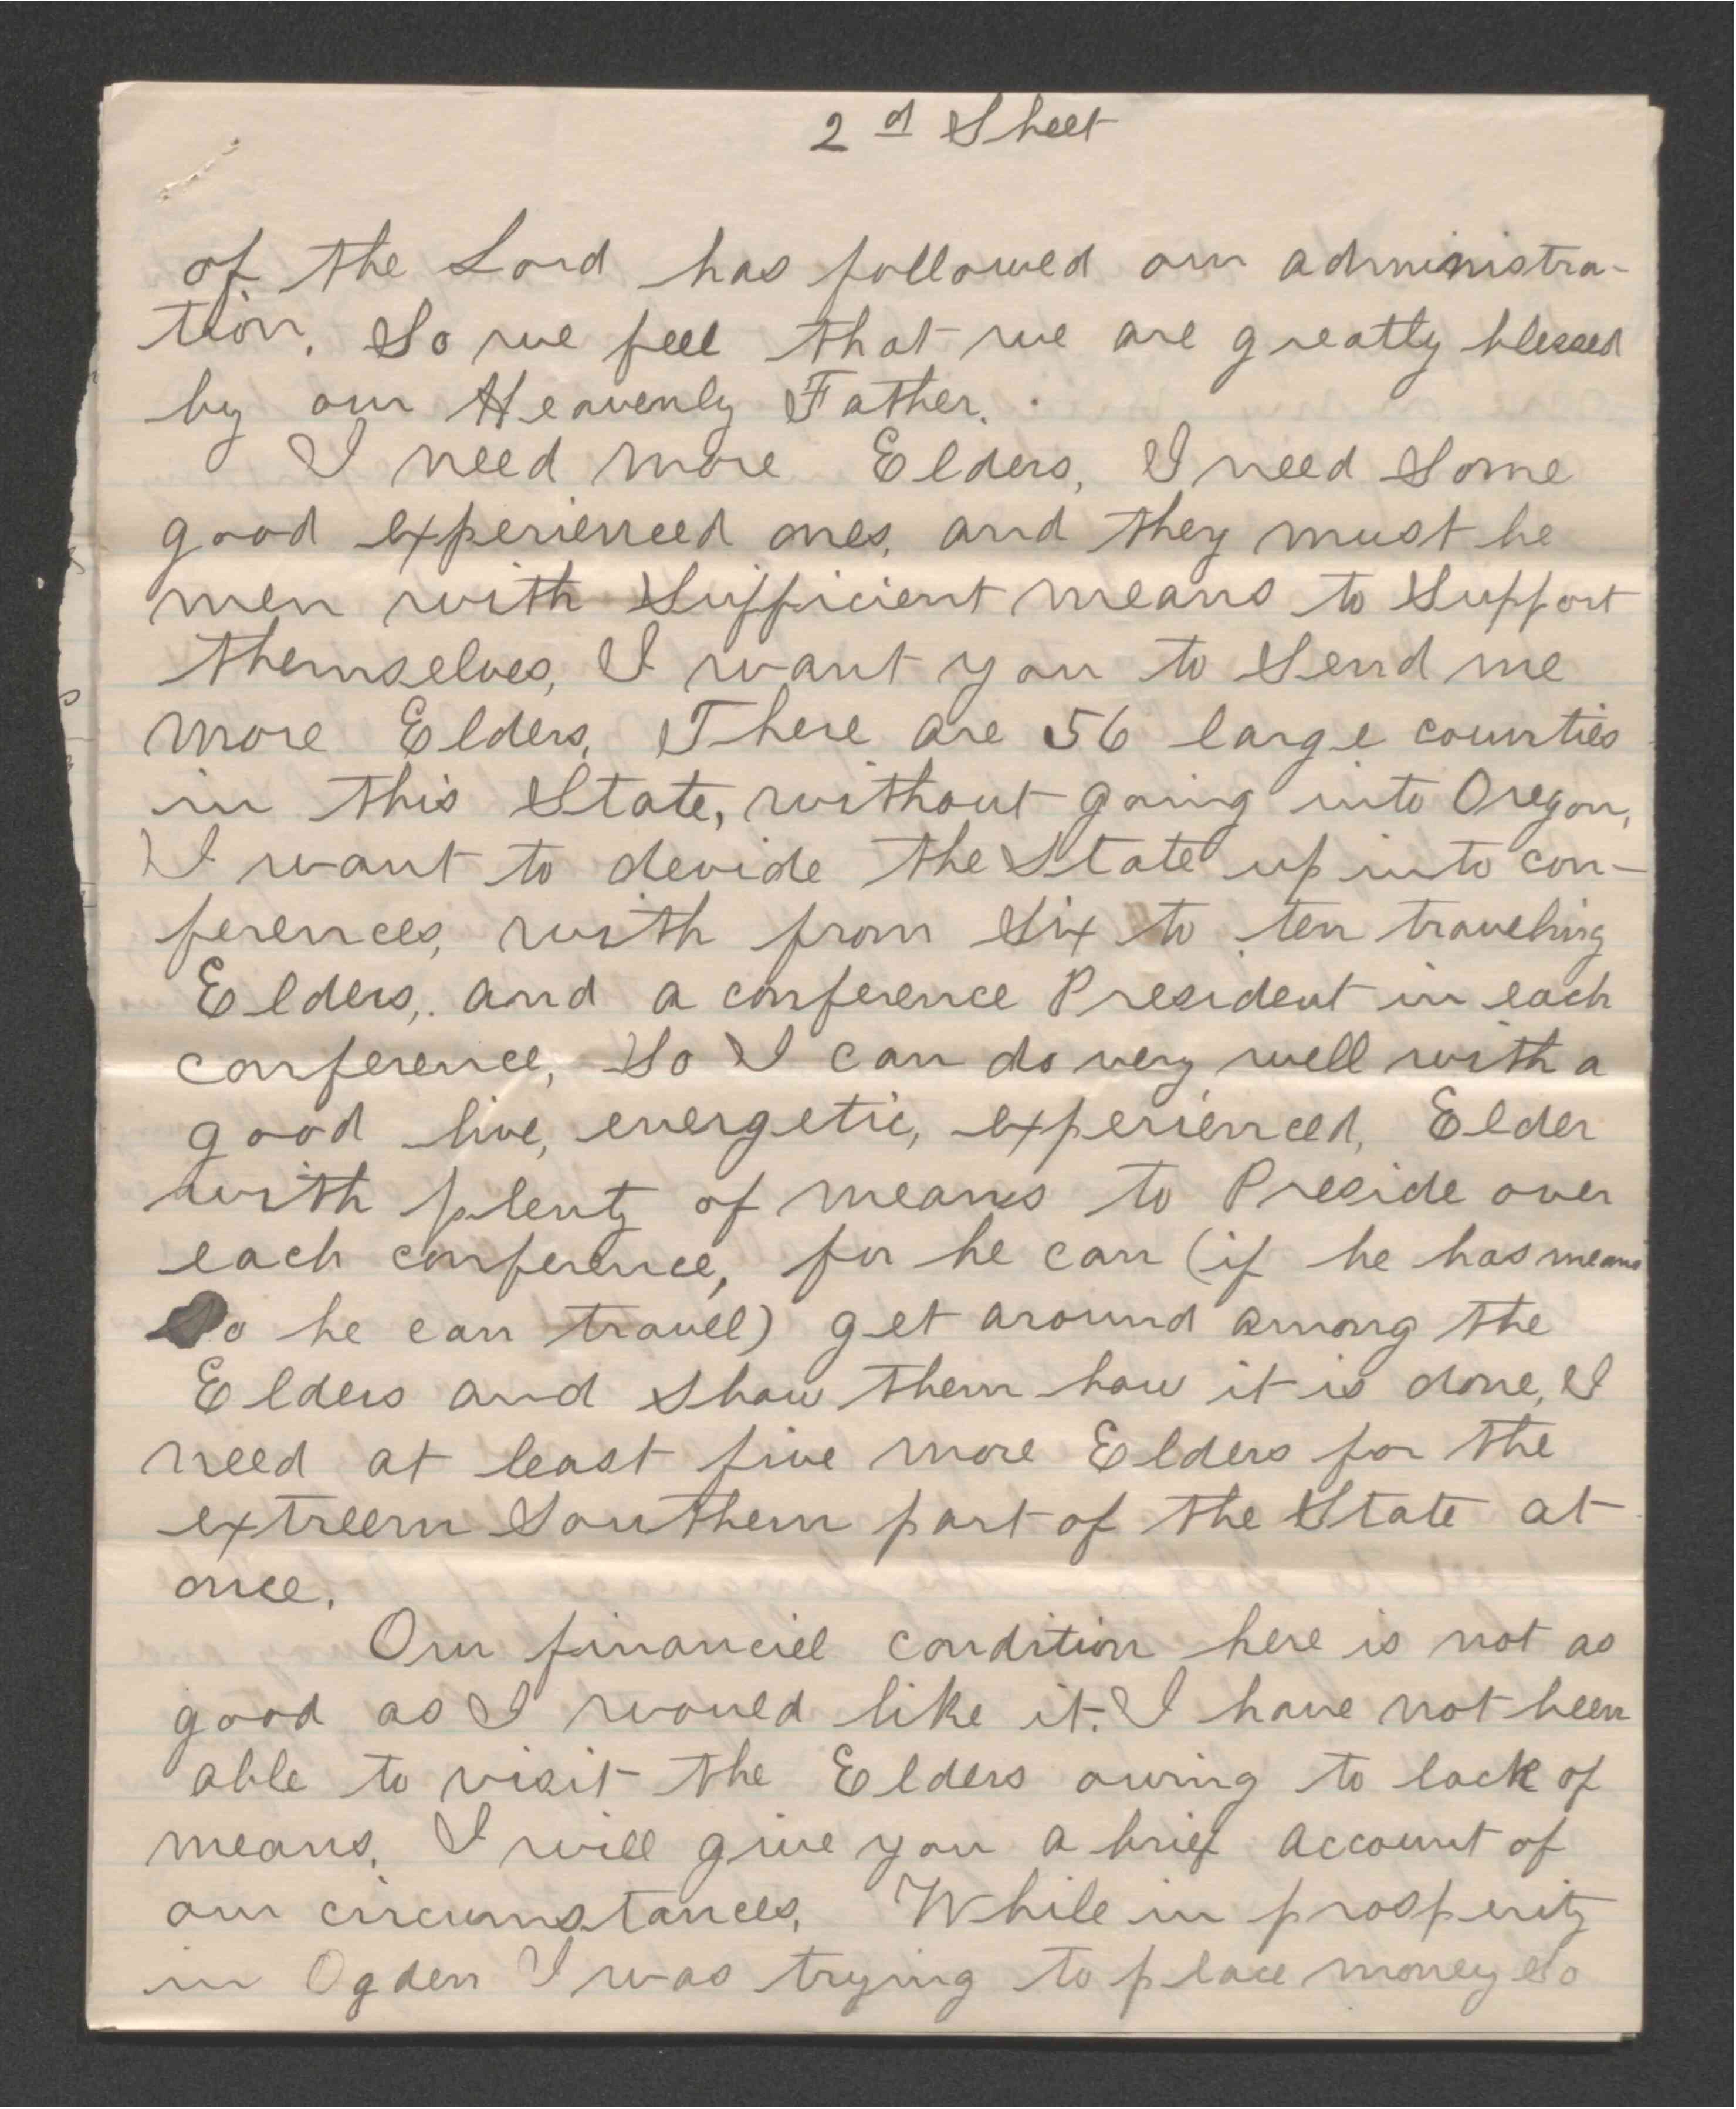 2d Sheet
of the Lord has followed our administra-
tion. So we feel that we are greatly blessed
by our Heavenly Father.
I need more Elders, I need Some
good experienced ones, and they must be
men with Sufficient means to Support
themselves, I want you to Send me
more Elders, There are 56 large counties
in this State, without going into Oregon,
I want to devide the State up into con-
ferences, with from Six to ten traveling
Elders, and a conference President in each
conference, So I can do very well with a
good live, energetic, experienced, Elder
with plenty of means to Preside over
each conference, for he can (if he has means
So he can travell) get around among the
Elders and Show them how it is done, I
need at least five more Elders for the
extreem Southern part of the State at
once.
Our financiel condition here is not as
good as I would like it. I have not been
able to visit the Elders owing to lack of
means, I will give you a brief account of
our circumstances, While in prosperity
in Ogden I was trying to place money So